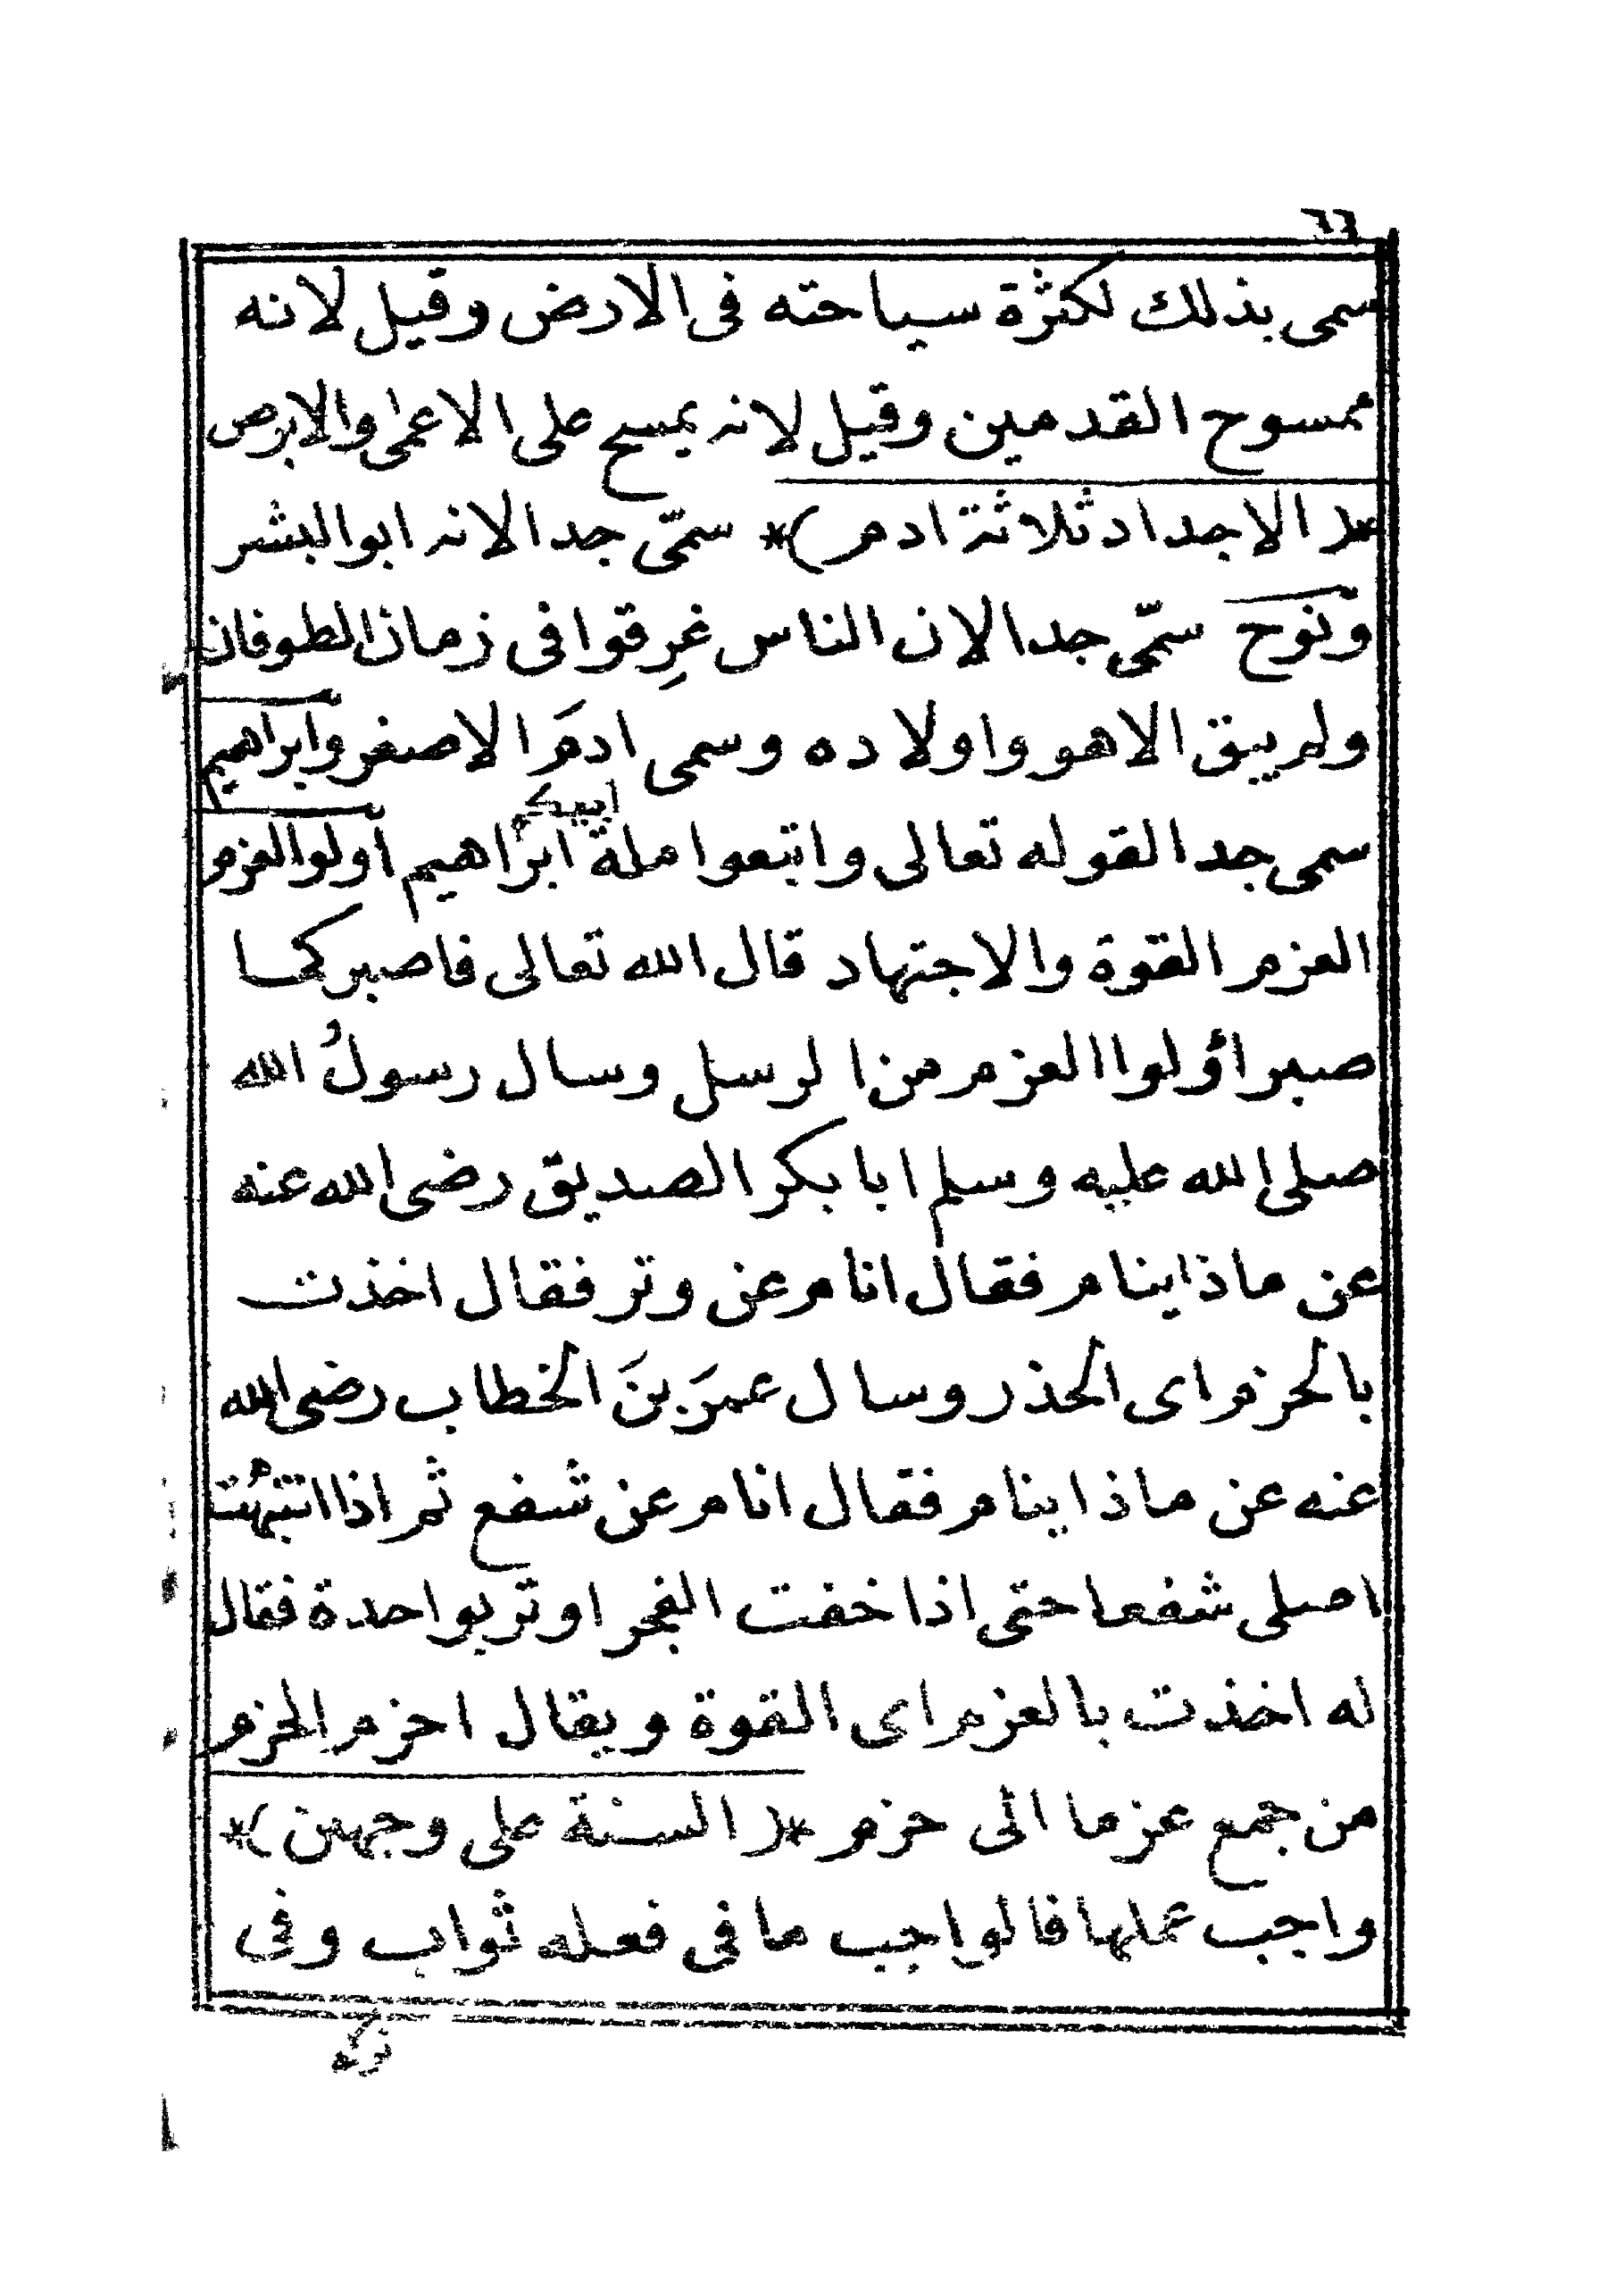 ٦٦
سمى بذلك لكثرة سياحته فى الارض وقيل لانه
ممسوح القدمين وقيل لانه يمسح على الاعمى والابرص
*( الاجداد ثلاثة ادم )* سمّى جدا لانه ابوالبشر
ونوح سمّى جدا لان الناس غرِقوا فى زمان الطوفان
ولم يبق الا هو واولاده وسمى ادمَ الاصغر وابراهيم
ابيكم
سمى جدا لقوله تعالى واتبعوا ملة ابراهيم اولوا العزم
العزم القوة والاجتهاد قال الله تعالى فاصبر كما
صبر اؤلوا العزم من الرسل وسال رسولُ الله
صلى الله عليه وسلم ابا بكر الصديق رضى الله عنه
عن ماذا ينام فقال انام عن وتر فقال اخذت
بالحزم اى الحذر وسال عمرَ بنَ الخطاب رضى الله
عنه عن ماذا ينام فقال انام عن شفع ثم اذا انتبهت
اصلى شفعا حتى اذا خفت الفجر اوتر بواحدة فقال
له اخذت بالعزم اى القوة ويقال احزم الحزم
من جمع عزما الى حزم *( السنة على وجهين )*
واجب عملها فالواجب ما فى فعله ثواب وفى
تركه